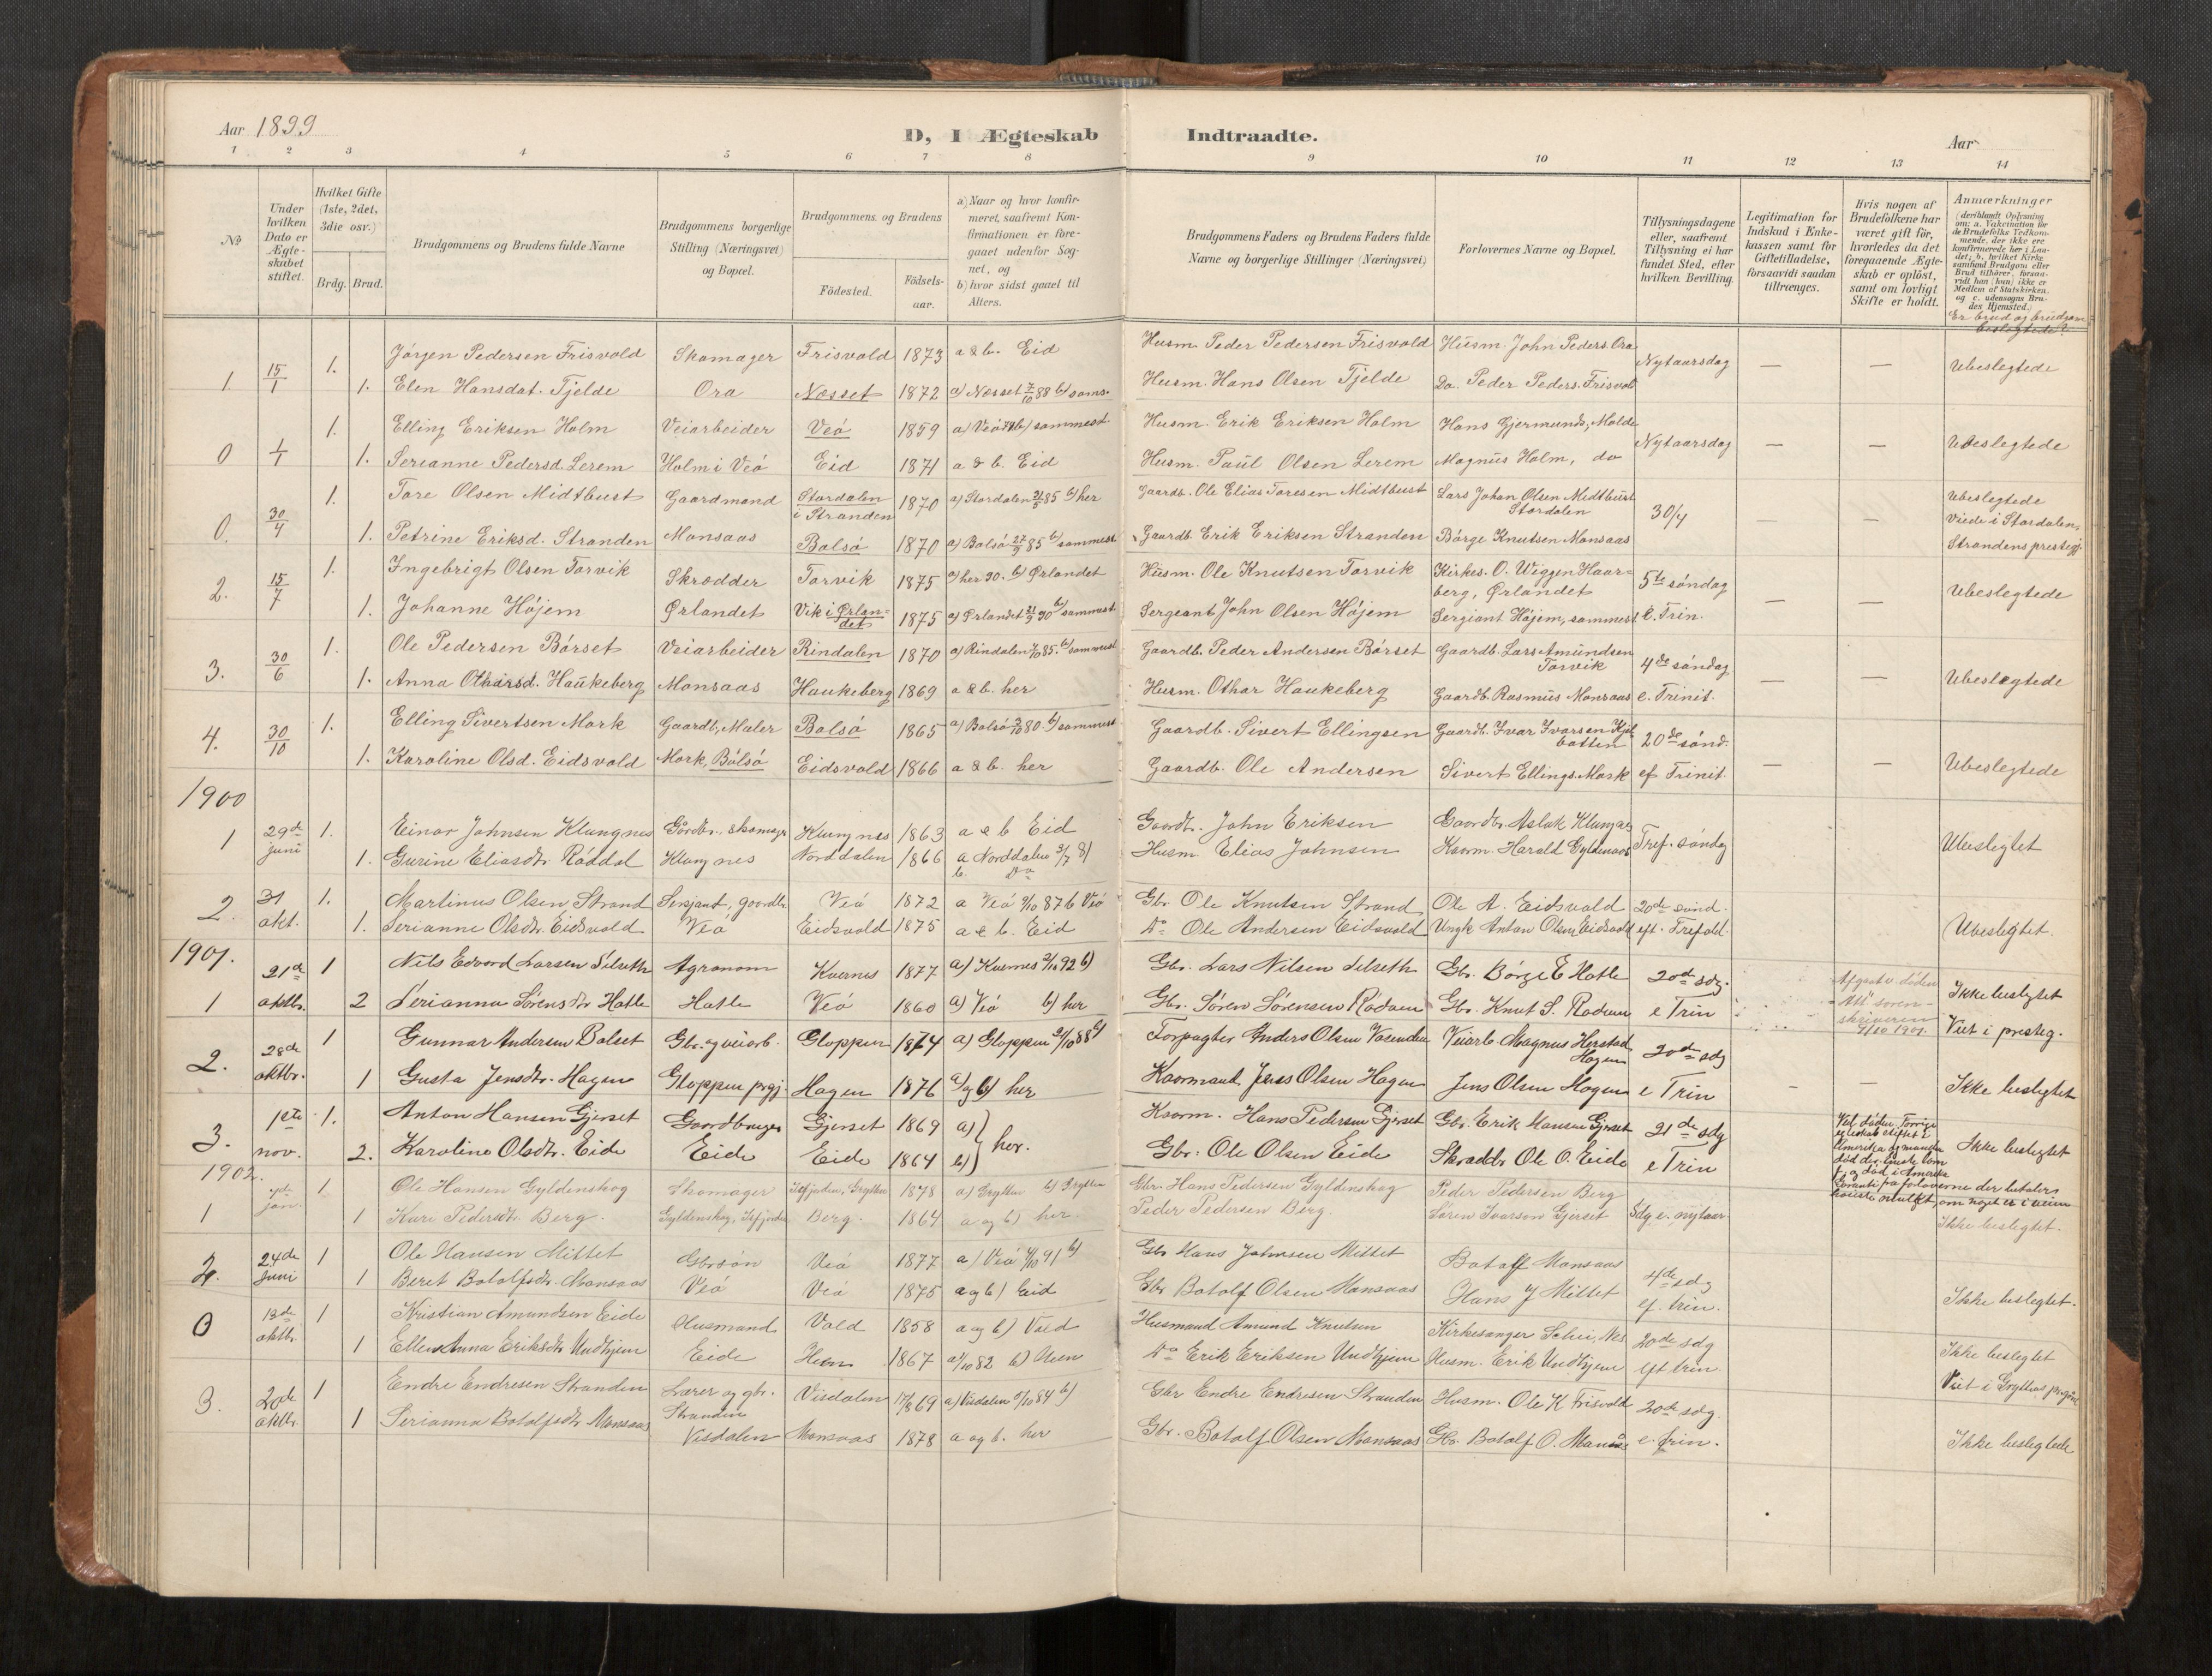 Aar 1899
D, I Ægteskab Indtraadte.
Aar
1 2 3 4 5 6 7 8 9 10 11 12 13 14
No
Under hvilken Dato er Ægteskabet stiftet.
Hvilket Gifte (1ste, 2det, 3die osv.)
Brdg. Brud.
Brudgommens og Brudens fulde Navne
Brudgommens borgerlige Stilling (Næringsvei) og Bopæl.
Brudgommens og Brudens
Födested.
Födsels-aar.
a) Naar og hvor konfirmeret, saafremt Konfirmationen er foregaaet udenfor Sognet, og
b) hvor sidst gaaet til Alters.
Brudgommens Faders og Brudens Faders fulde Navne og borgerlige Stillinger (Næringsvei)
Forlovernes Navne og Bopæl.
Tillysningsdagene eller, saafremt Tillysning ei har fundet Sted, efter hvilken Bevilling.
Legitimation for Indskud i Enkekassen samt for Giftetilladelse, forsaavidt saadan tiltrænges.
Hvis nogen af Brudefolkene har været gift för, hvorledes da det foregaaende Ægteskab er oplöst, samt om lovligt Skifte er holdt.
Anmærkninger (deriblandt Oplysning om: a. Vakcination for de Brudefolks Vedkommende, der ikke ere konfirmerede her i Landet; b. hvilket Kirkesamfund Brudgom eller Brud tilhører, forsaavidt han (hun) ikke er Medlem af Statskirken, og c. udensogns Brudes Hjemsted.)
Er brud og brudgom beslegtede?
1 15/1 1. Jörgen Pedersen Frisvold Skomager Frisvold 1873 a & b. Eid Husm. Peder Pedersen Frisvold Husm. John Peders. Ora Nytaarsdag — — Ubeslegtede
1. Elen Hansdat. Tjelde Ora Næsset 1872 a) Næsset 7/10 88 b) sams. Husm. Hans Olsen Tjelde Do. Peder Peders. Frisvold
0 1/1 1. Elling Eriksen Holm Veiarbeider Veö 1859 a) Veö b) sammest. Husm. Erik Eriksen Holm Hans Gjermunds, Molde Nytaarsdag — — Ubeslegtede
1. Serianne Pedersd. Lerem Holm i Veö Eid 1871 a & b. Eid Husm. Paul Olsen Lerem Magnus Holm, do
0. 30/4 1. Tore Olsen Midtbust Gaardmand Stordalen i Stranden 1870 a) Stordalen 85 b) her Gaardb. Ole Elias Toresen Midtbust Lars Johan Olsen Midtbust Stordalen 30/4 — — Ubeslegtede
Viede i Stordalen, Strandens prestegj.
1. Petrine Eriksd. Stranden Monsaas Bolsö 1870 a) Bolsö 27/9 85 b) sammest Gaardb. Erik Eriksen Stranden Börge Knutsen Monsaas
2. 15/7 1. Ingebrigt Olsen Torvik Skrædder Torvik 1875 a) her 90. b) Ørlandet Husm. Ole Knutsen Torvik Kirkes. O. Wiggen Haarberg, Ørlandet 5te söndag — Ubeslegtede
1. Johanne Höjem Ørlandet Vik i Ørlandet 1875 a) Ørlandet 90 b) sammest Sergeant John Olsen Höjem Sergiant Höjem, sammest e. Trin.
3. 30/6 1. Ole Pedersen Börset Veiarbeider Rindalen 1870 a) Rindalen 85. b) sammest Gaardb. Peder Andersen Börset Gaardb. Lars Amundsen Torvik 4de söndag — — Ubeslegtede
1. Anna Otharsd. Haukeberg Monsaas Haukeberg 1869 a & b. her Husm. Othar Haukeberg Gaardb. Rasmus Monsaas e. Trinit.
4. 30/10 1. Elling Sivertsen Mork Gaardb, Maler Bolsö 1865 a) Bolsö 80 b) sammest Gaardb. Sivert Ellingsen Gaardb. Ivar Ivarsen 20de sönd.
1. Karoline Olsd. Eidsvold Mork, Bolsö Eidsvold 1866 a & b. her Gaardb. Ole Andersen Sivert Ellings. Mork ef Trinit. — — Ubeslegtede
1900
1 29de juni 1. Einar Johnsen Klungnes Gårdbr., skomager Klungnes 1863 a & b Eid Gaardbr. John Eriksen Gaardbr. Aslak Klungnes Tref. söndag Ubeslegtet
1. Gurine Eliasdtr. Röddal Klungnes Norddalen 1866 a Norddalen 3/7 81 b. Do Husm. Elias Johnsen Kaarm. Harald Gyldenaas
2. 31 okt. 1. Martinus Olsen Strand Sersjant, gaardbr. Veö 1872 a Veö 87 b Veö Gbr. Ole Knutsen Strand Ole A. Eidsvold 20de sönd.
1. Serianne Olsdtr. Eidsvold Veö Eidsvold 1875 a & b. Eid Do Ole Andersen Eidsvold Ungk Anton Olsen Eidsvold eft. Trefold. Ubeslegtet.
1901.
1 21de oktbr. 1 Nils Edvard Larsen Silseth Agronom Kvernes 1877 a) Kvernes 2/10 92 b) Gbr. Lars Nilsen Silseth Gbr. Börge E Hatle 20de sdg. Ikke beslegtet
2 Serianna Sörensdtr. Hatle Hatle Veö 1860 a) Veö b) her Gbr. Sören Sörensen Rödven Gbr. Knut S. Rödven e Trin skriveren 7/10 1901. Viet i presteg.
2. 28de oktbr. 1 Gunnar Andersen Bolset Gbr. og veiarb. Gloppen 1874 a) Gloppen 2/10 88 b) Forpagter Anders Olsen Vasenden Veiarb. Magnus Herstad Hagen 20de sdg
1 Gusta Jensdtr. Hagen Gloppen prgj. Hagen 1876 a) og b) her Kaarmand Jens Olsen Hagen Jens Olsen Hagen e Trin - - Ikke beslegtet
3. 1ste nov. 1. Anton Hansen Gjerset Gaardbruger Gjerset 1869 a) her. Kaarm. Hans Pedersen Gjerset Gbr. Erik Hansen Gjerset 21de sdg Ved döden. Forrige egteskab stiftet i Amerika og manden död der. Ikke beslegtet
2. Karoline Olsdtr. Eide Eide Eide 1864 b) Gbr. Ole Olsen Eide Skradder Ole O. Eide e Trin
1902.
1 jan. 1 Ole Hansen Gyldenskog Skomager Isfjorden, Grytten 1878 a) Grytten b) Grytten Gbr. Hans Pedersen Gyldenskog Peder Pedersen Berg
1 Kari Pedersdtr. Berg. Gyldenskog, Isfjorden Berg. 1864 a og b) her. Peder Pedersen Berg. Sören Ivarson Gjerset Sdg e. nytaar. Ikke beslegtet.
2. 24de juni 1 Ole Hansen Mittet Gbrsön Veö 1877 a) Veö 91 b) Gbr Hans Johnsen Mittet Botolf Monsaas 4de sdg
1 Beret Botolfsdtr. Monsaas Veö Veö 1875 a og b) Eid Gbr Botolf Olsen Monsaas Hans J Mittet ef. trin. Ikke beslegtet.
0 oktbr. 1 Kristian Amundsen Eide Husmand Vold 1858 a og b) Vold Husmand Amund Knutsen Kirkesanger 20de sdg
1 Ellen Anna Eriksdtr Undhjem Eide Hen 1867 82 b) Hen Do Erik Eriksen Undhjem Husm. Erik Undhjem eft trin Ikke beslegtet
3. 20de oktbr. 1 Endre Endresen Stranden Lærer og gbr. Visdalen 69 a) Visdalen 84 b) Gbr Endre Endresen Stranden Husm. Ole K Frisvold 20de sdg Viet i Gryttens
1 Serianna Botolfsdtr Monsaas Stranden Visdalen Monsaas 1878 a og b. her Gbr. Botolf Olsen Monsaas Gbr. Botolf O. e. trin. Ikke beslegtede